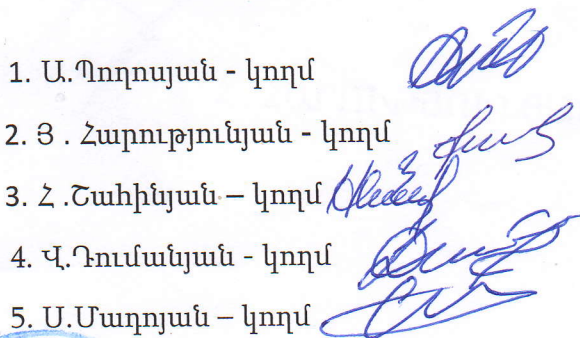 1. Ա.Պողոսյան - կողմ
2. Յ . Հարությունյան - կողմ
3. Հ .Շահինյան – կողմ
4. Վ.Դումանյան - կողմ
5. Ս.Մադոյան – կողմ